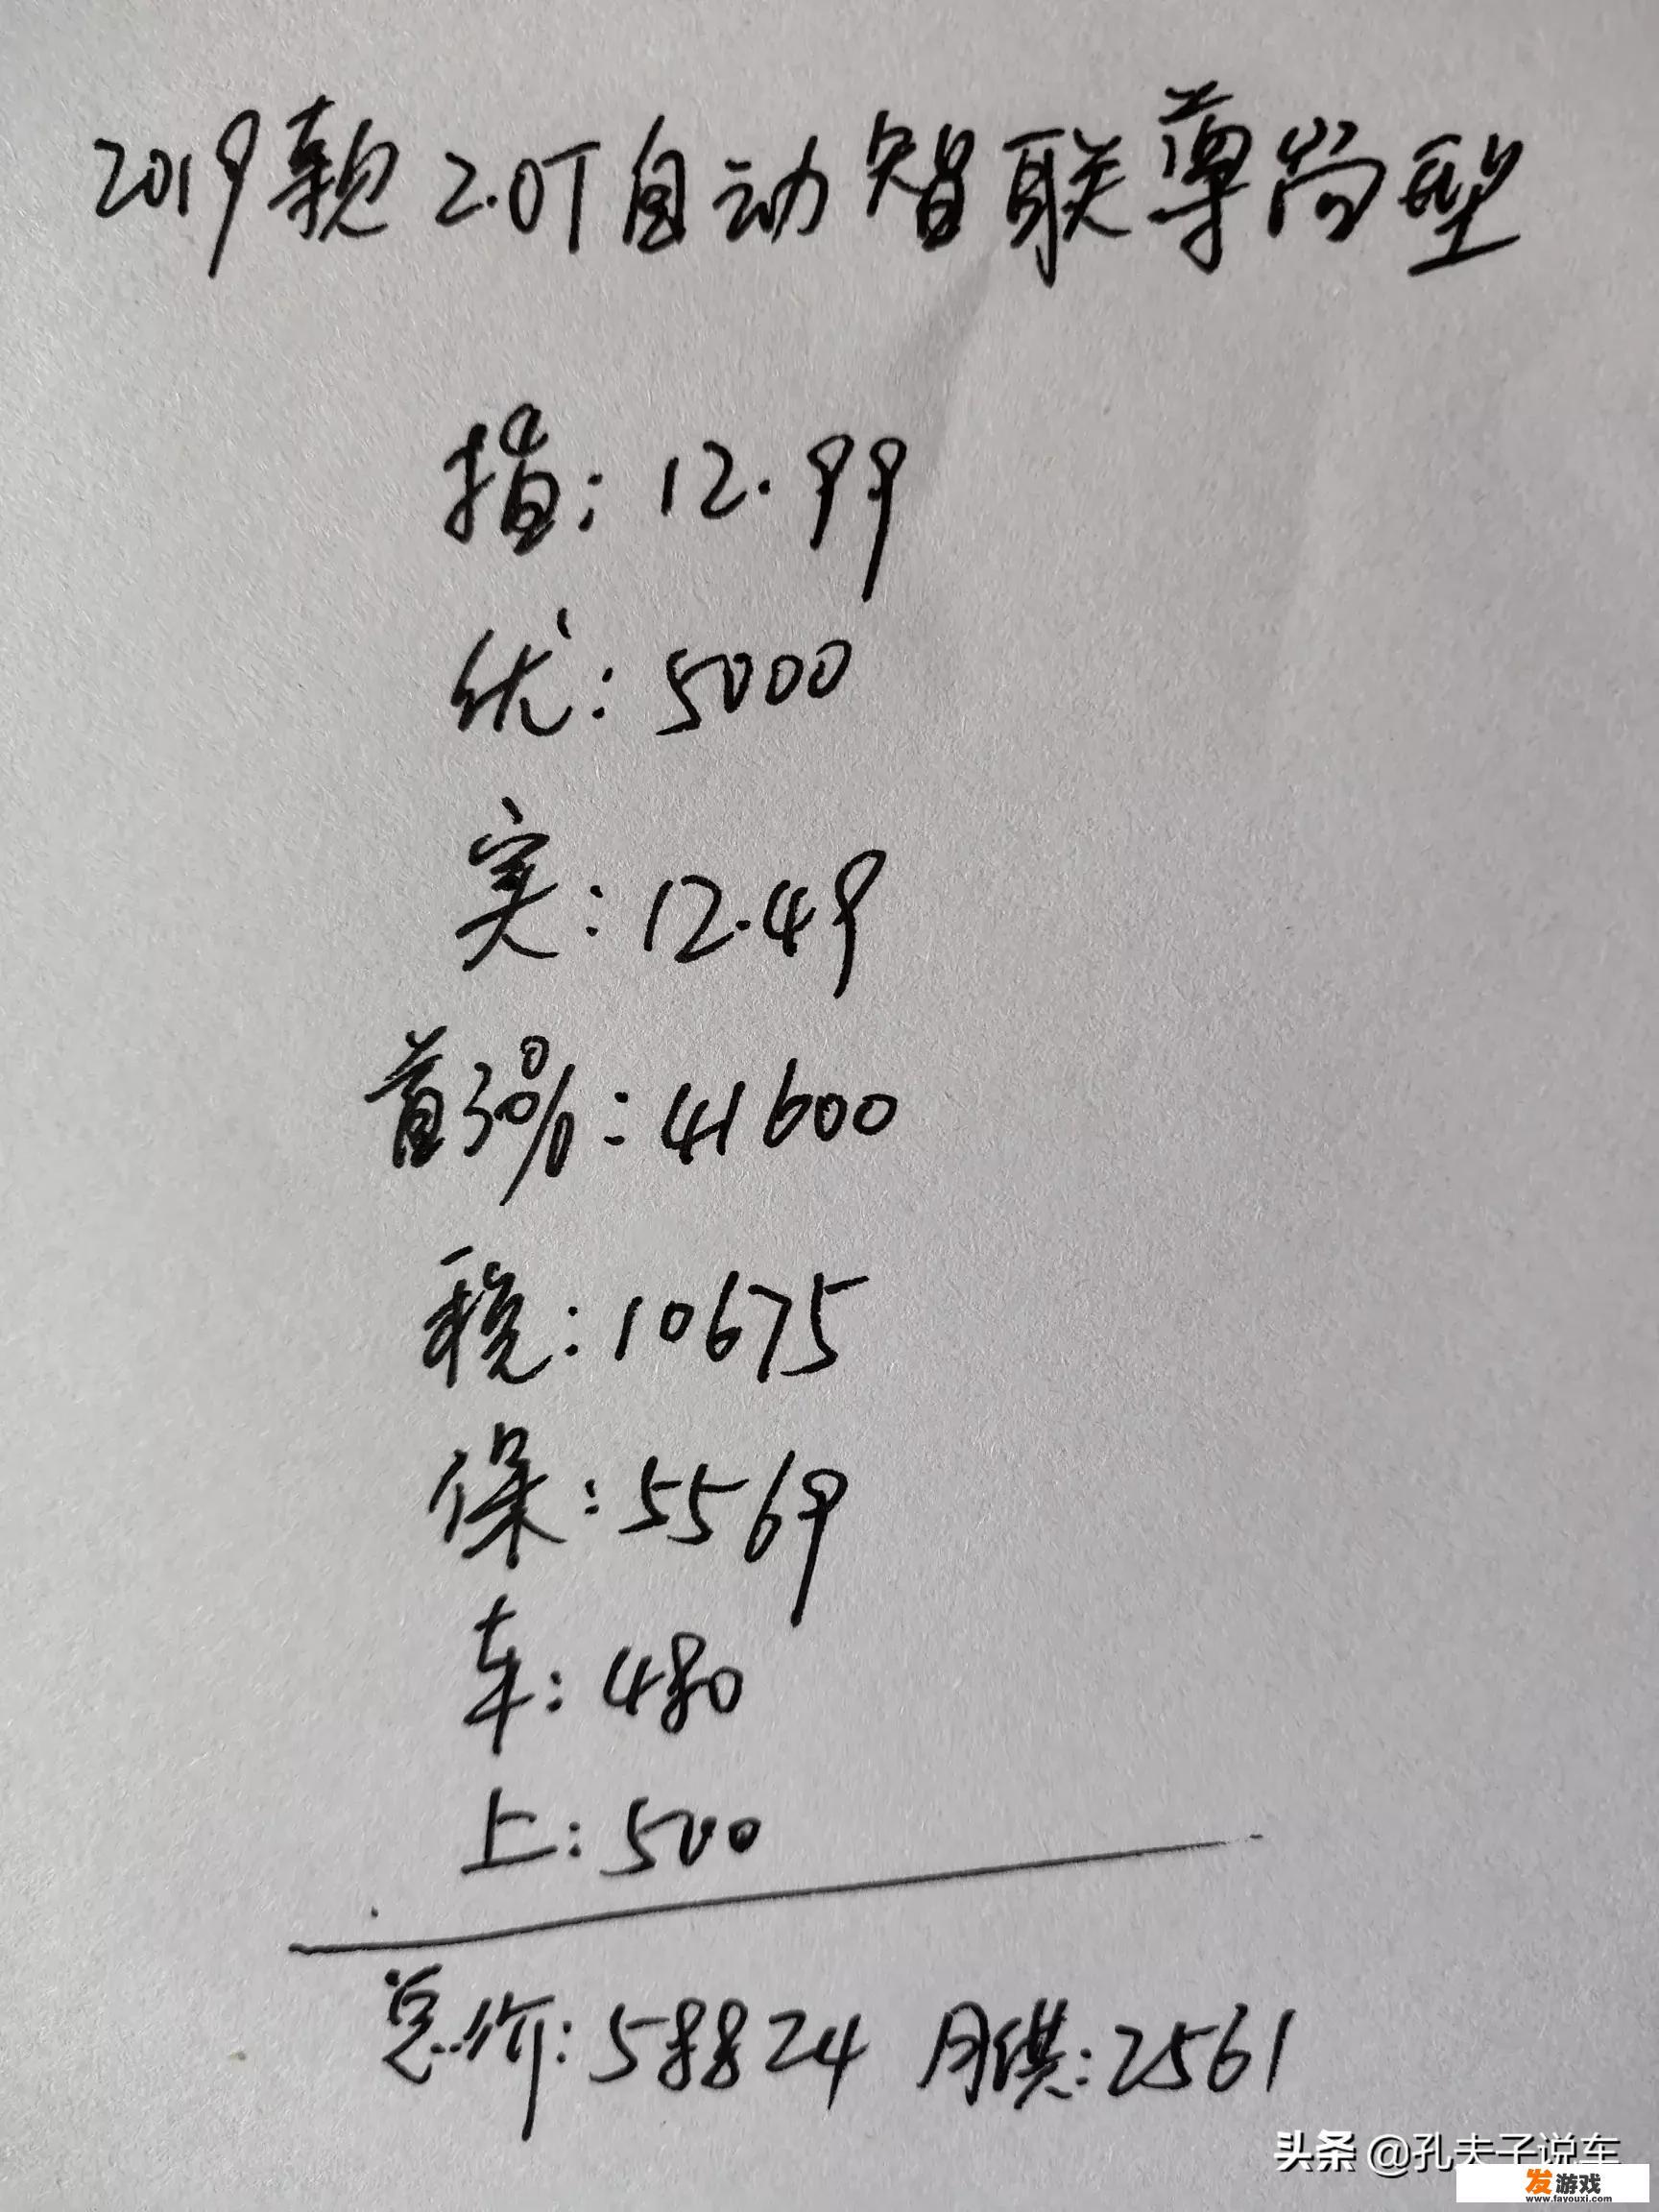 2019款 2.0T自动智联尊尚型
指: 12.99
优: 5000
实: 12.49
首30%: 41600
税: 10675
保: 5569
车: 480
上: 500
总价: 58824 月供: 2561
头条 @孔夫子说车
发游戏
www.fayouxi.com